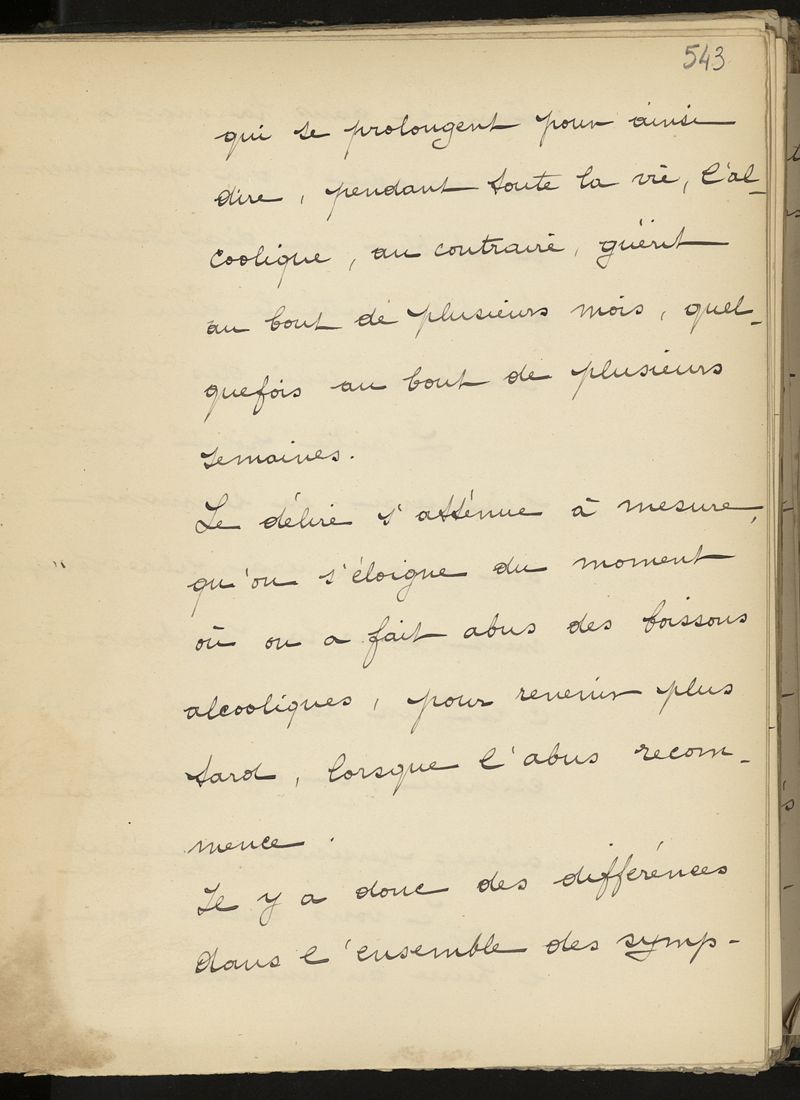 543
qui se prolongent pour ainsi
dire, pendant toute la vie, l'al-
coolique, au contraire, guérit
au bout de plusieurs mois, quel-
quefois au bout de plusieurs
semaines.
Le délire s'atténue à mesure,
qu'on s'éloigne du moment
où on a fait abus des boissons
alcooliques, pour revenir plus
tard, lorsque l'abus recom-
mence.
Il y a donc des différences
dans l'ensemble des symp-